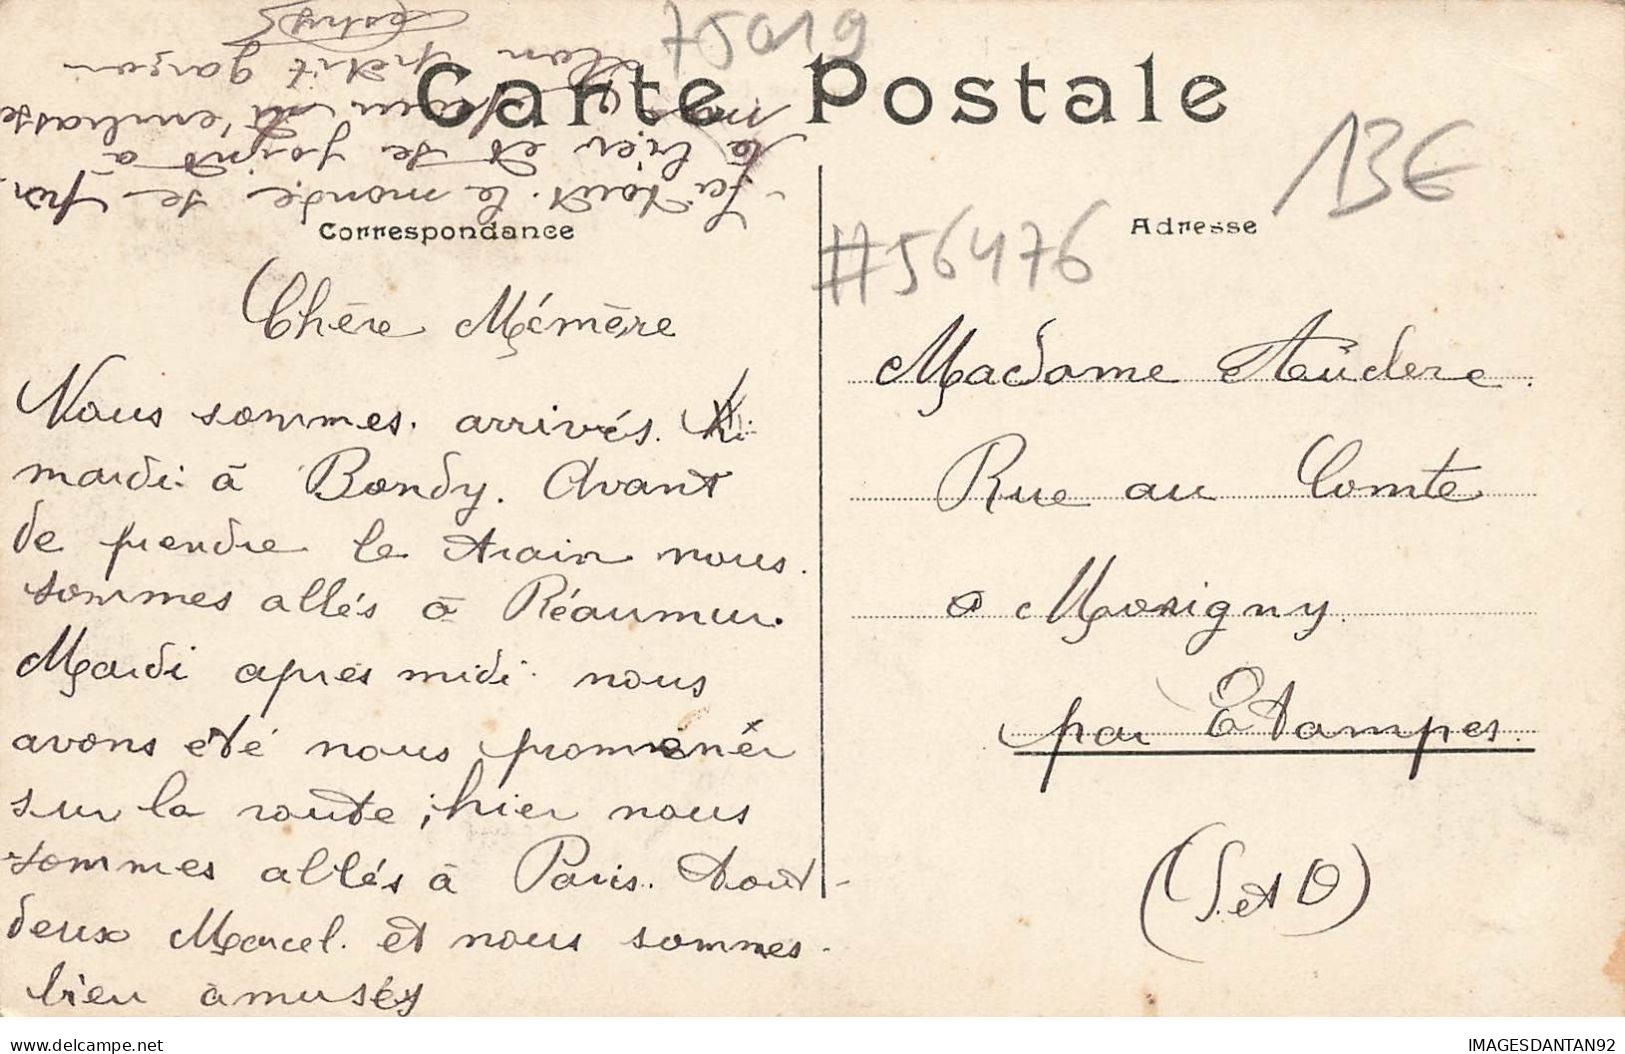 75019
Carte Postale
13€
Correspondance
Adresse
#56476
Chère Mémère
Nous sommes arrivés
mardi à Bondy. Avant
de prendre le train nous
sommes allés à Réaumur.
Mardi après midi nous
avons eté nous promener
sur la route ; hier nous
sommes allés à Paris. tout
deux Marcel et nous sommes
bien amusés
Ici tout le monde se
bien et se joint à
t'embrasse
petit garçon
Madame Audere
Rue au Comte
à Morigny
par Etampes.
(S. et O)
IMAGESDANTAN92
delcampe.net